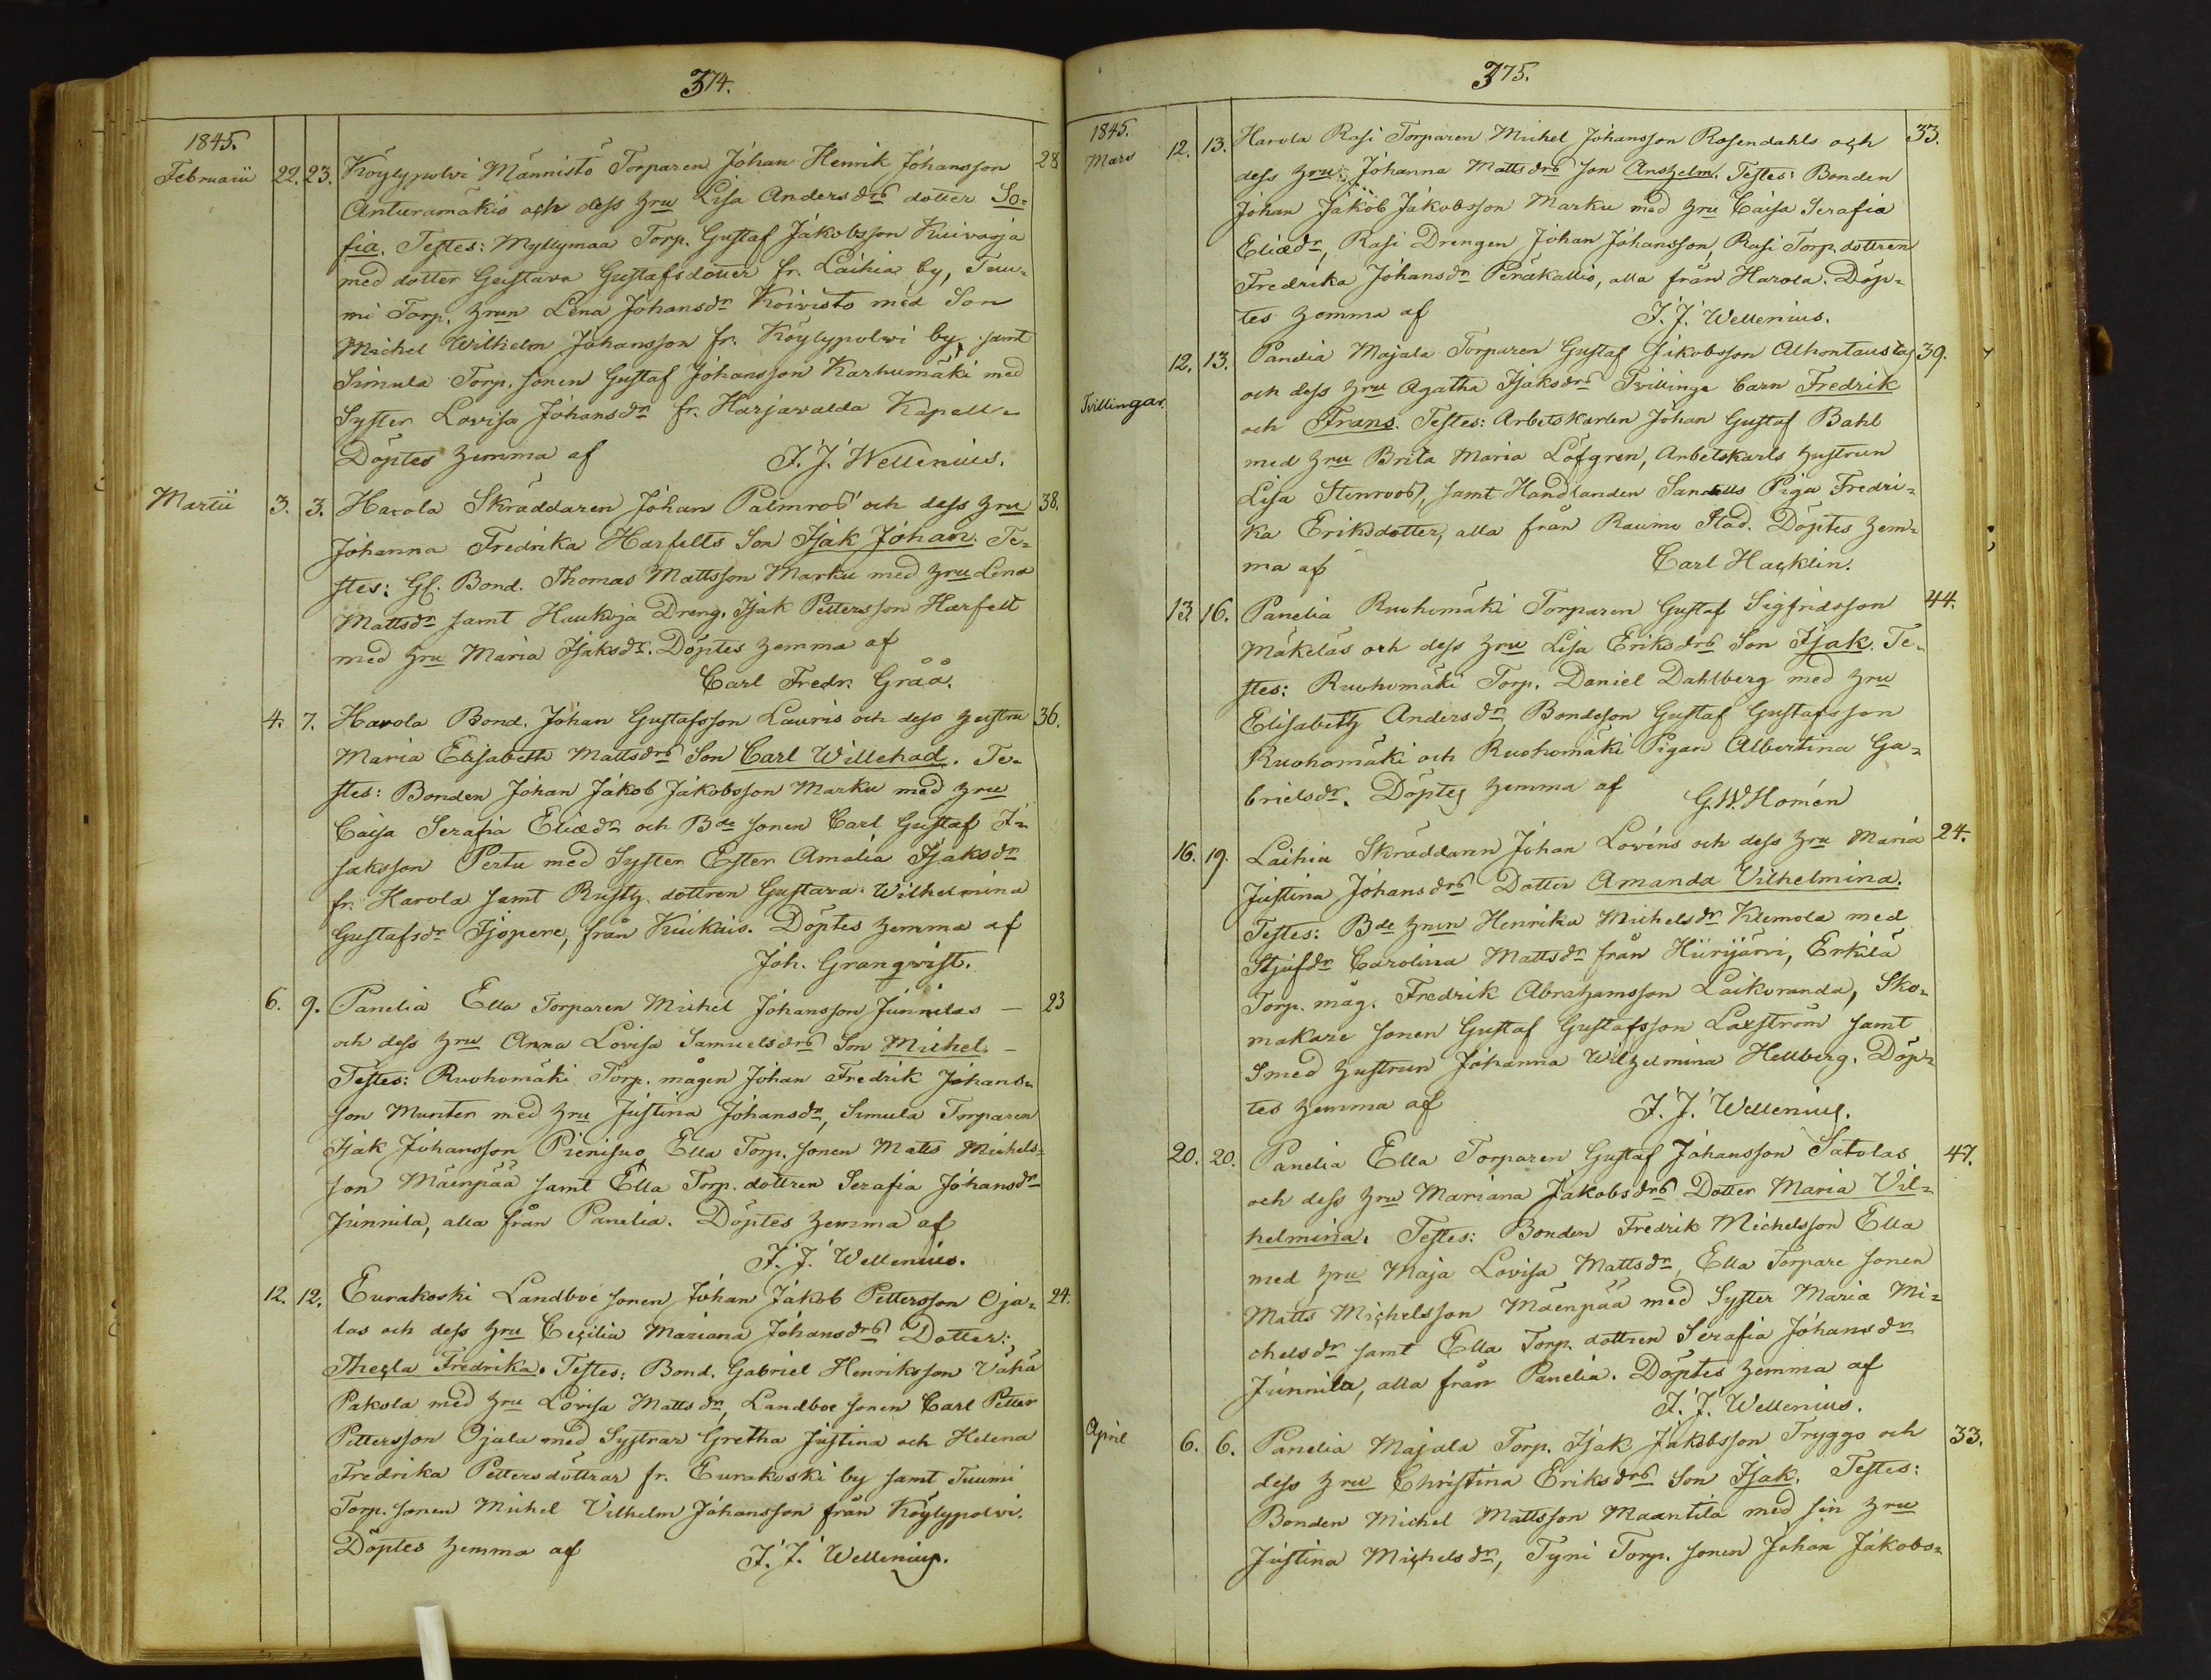 374.
1845.
Februarii 22. 23. Köylypolvi Männistö Torparen Johan Henrik Johansson 28
Anturamäkis och dess hru Lisa Andersdrs dotter So-
fia. Testes: Myllymaa Torp. Gustaf Jakobsson Kuivaoja
med dotter Gustava Gustafsdotter fr. Laihia by, Tuu-
mi Torp. hrun Lena Johansdr Koivisto med Son
Michel Wilhelm Johansson fr. Köylypolwi by, samt
Simula Torp. sonen Gustaf Johansson Karhumäki med
Syster Lovisa Johansdr fr. Harjavalda Kapell.
Döptes hemma af J. J. Wellenius.
Martii 3. 3. Harola Skräddaren Johan Palmros och dess hru 38.
Johanna Fredrika Harfelts Son Isak Johan. Te-
stes: Gl. Bond. Thomas Mattsson Marku med hru Lena
Mattsdr samt Haukoja Dreng. Isak Pettersson Harfelt
med hru Maria Isaksdr. Döptes hemma af
Carl Fredr. Gråå.
4. 7. Harola Bond. Johan Gustafsson Lauris och dess hustru 36.
Maria Elisabeth Mattsdrs Son Carl Willehad. Te-
stes: Bonden Johan Jakob Jakobsson Marku med hru
Caisa Serafia Eliædr och Bde sonen Carl Gustaf I-
saksson Pertu med Syster Ester Amalia Isaksdr
fr. Harola samt Rusth. dottren Gustava Wilhelmina
Gustafsdr Isopere, från Kiukais. Döptes hemma af
Joh. Granqwist.
6. 9. Panelia Ella Torparen Michel Johansson Junnilas — 23
och dess hru Anna Lovisa Samuelsdrs Son Michel. —
Testes: Ruohomäki Torp. mågen Johan Fredrik Johans-
son Munter med hru Justina Johansdr, Simula Torparen
Isak Johansson Pienisuo, Ella Torp. sonen Matts Michels-
son Mäenpää samt Ella Torp. dottren Serafia Johansdr
Junnila, alla från Panelia. Döptes hemma af
J. J. Wellenius.
12. 12. Eurakoski Landboe sonen Johan Jakob Pettersson Oja- 24.
las och dess hru Cecilia Mariana Johansdrs Dotter:
Thecla Fredrika. Testes: Bond. Gabriel Henriksson Vähä
Pakola med hru Lovisa Mattsdr, Landboe sonen Carl Petter
Pettersson Ojala med Systrar Gretha Justina och Helena
Fredrika Pettersdöttrar fr. Eurakoski by samt Tuumi
Torp. sonen Michel Vilhelm Johansson från Köylypolvi.
Döptes hemma af J. J. Wellenius.
375.
1845.
Mars 12. 13. Harola Rasi Torparen Michel Johansson Rosendahls och 33.
dess hru Johanna Mattsdrs Son Anshelm. Testes: Bonden
Johan Jakob Jakobsson Marku med hru Caisa Serafia
Eliædr, Rasi Drengen Johan Johansson, Rasi Torp. dottren
Fredrika Johansdr Peräkallio, alla från Harola. Döp-
tes hemma af J. J. Wellenius.
12. 13. Panelia Majala Torparen Gustaf Jakobsson Alhontaustas 39.
och dess hru Agatha Isaksdrs Tvillinge barn Fredrik
Tvillingar.
och Frans. Testes: Arbetskarlen Johan Gustaf Bahl
med hru Brita Maria Löfgren, Arbetskarls hustrun
Lisa Stenroos, samt Handlanden Sandells Piga Fredri-
ka Eriksdotter, alla från Raumo Stad. Döptes hem-
ma af Carl Hacklin.
13. 16. Panelia Ruohomäki Torparen Gustaf Sigfridsson 44.
Mäkeläs och dess hru Lisa Eriksdrs Son Isak. Te-
stes: Ruohomäki Torp. Daniel Dahlberg med hru
Elisabeth Andersdr, Bondeson Gustaf Gustafsson
Ruohomäki och Ruohomäki Pigan Albertina Ga-
brielsdr. Döptes hemma af G. W. Homén
16. 19. Laihia Skräddaren Johan Lovéns och dess hru Maria 24.
Justina Johansdrs Dotter Amanda Vilhelmina.
Testes: Bde hrun Henrika Michelsdr Klemola med
Stjufdr Carolina Mattsdr från Hiirijärvi, Erkilä
Torp. måg. Fredrik Abrahamsson Laikoranda, Sko-
makare sonen Gustaf Gustafsson Laxström samt
Smed hustrun Johanna Wilhelmina Hellberg. Döp-
tes hemma af J. J. Wellenius.
20. 20. Panelia Ella Torparen Gustaf Johansson Satolas 47.
och dess hru Mariana Jakobsdrs Dotter Maria Vil-
helmina. Testes: Bonden Fredrik Michelsson Ella
med hru Maja Lovisa Mattsdr, Ella Torpare sonen
Matts Michelsson Mäenpää med Syster Maria Mi-
chelsdr samt Ella Torp. dottren Serafia Johansdr
Junnila, alla från Panelia. Döptes hemma af
J. J. Wellenius.
April 6. 6. Panelia Majala Torp. Isak Jakobsson Tryggs och 33.
dess hru Christina Eriksdrs Son Isak. Testes:
Bonden Michel Mattsson Maantila med sin hru
Justina Michelsdr, Tyni Torp. sonen Johan Jakobs-